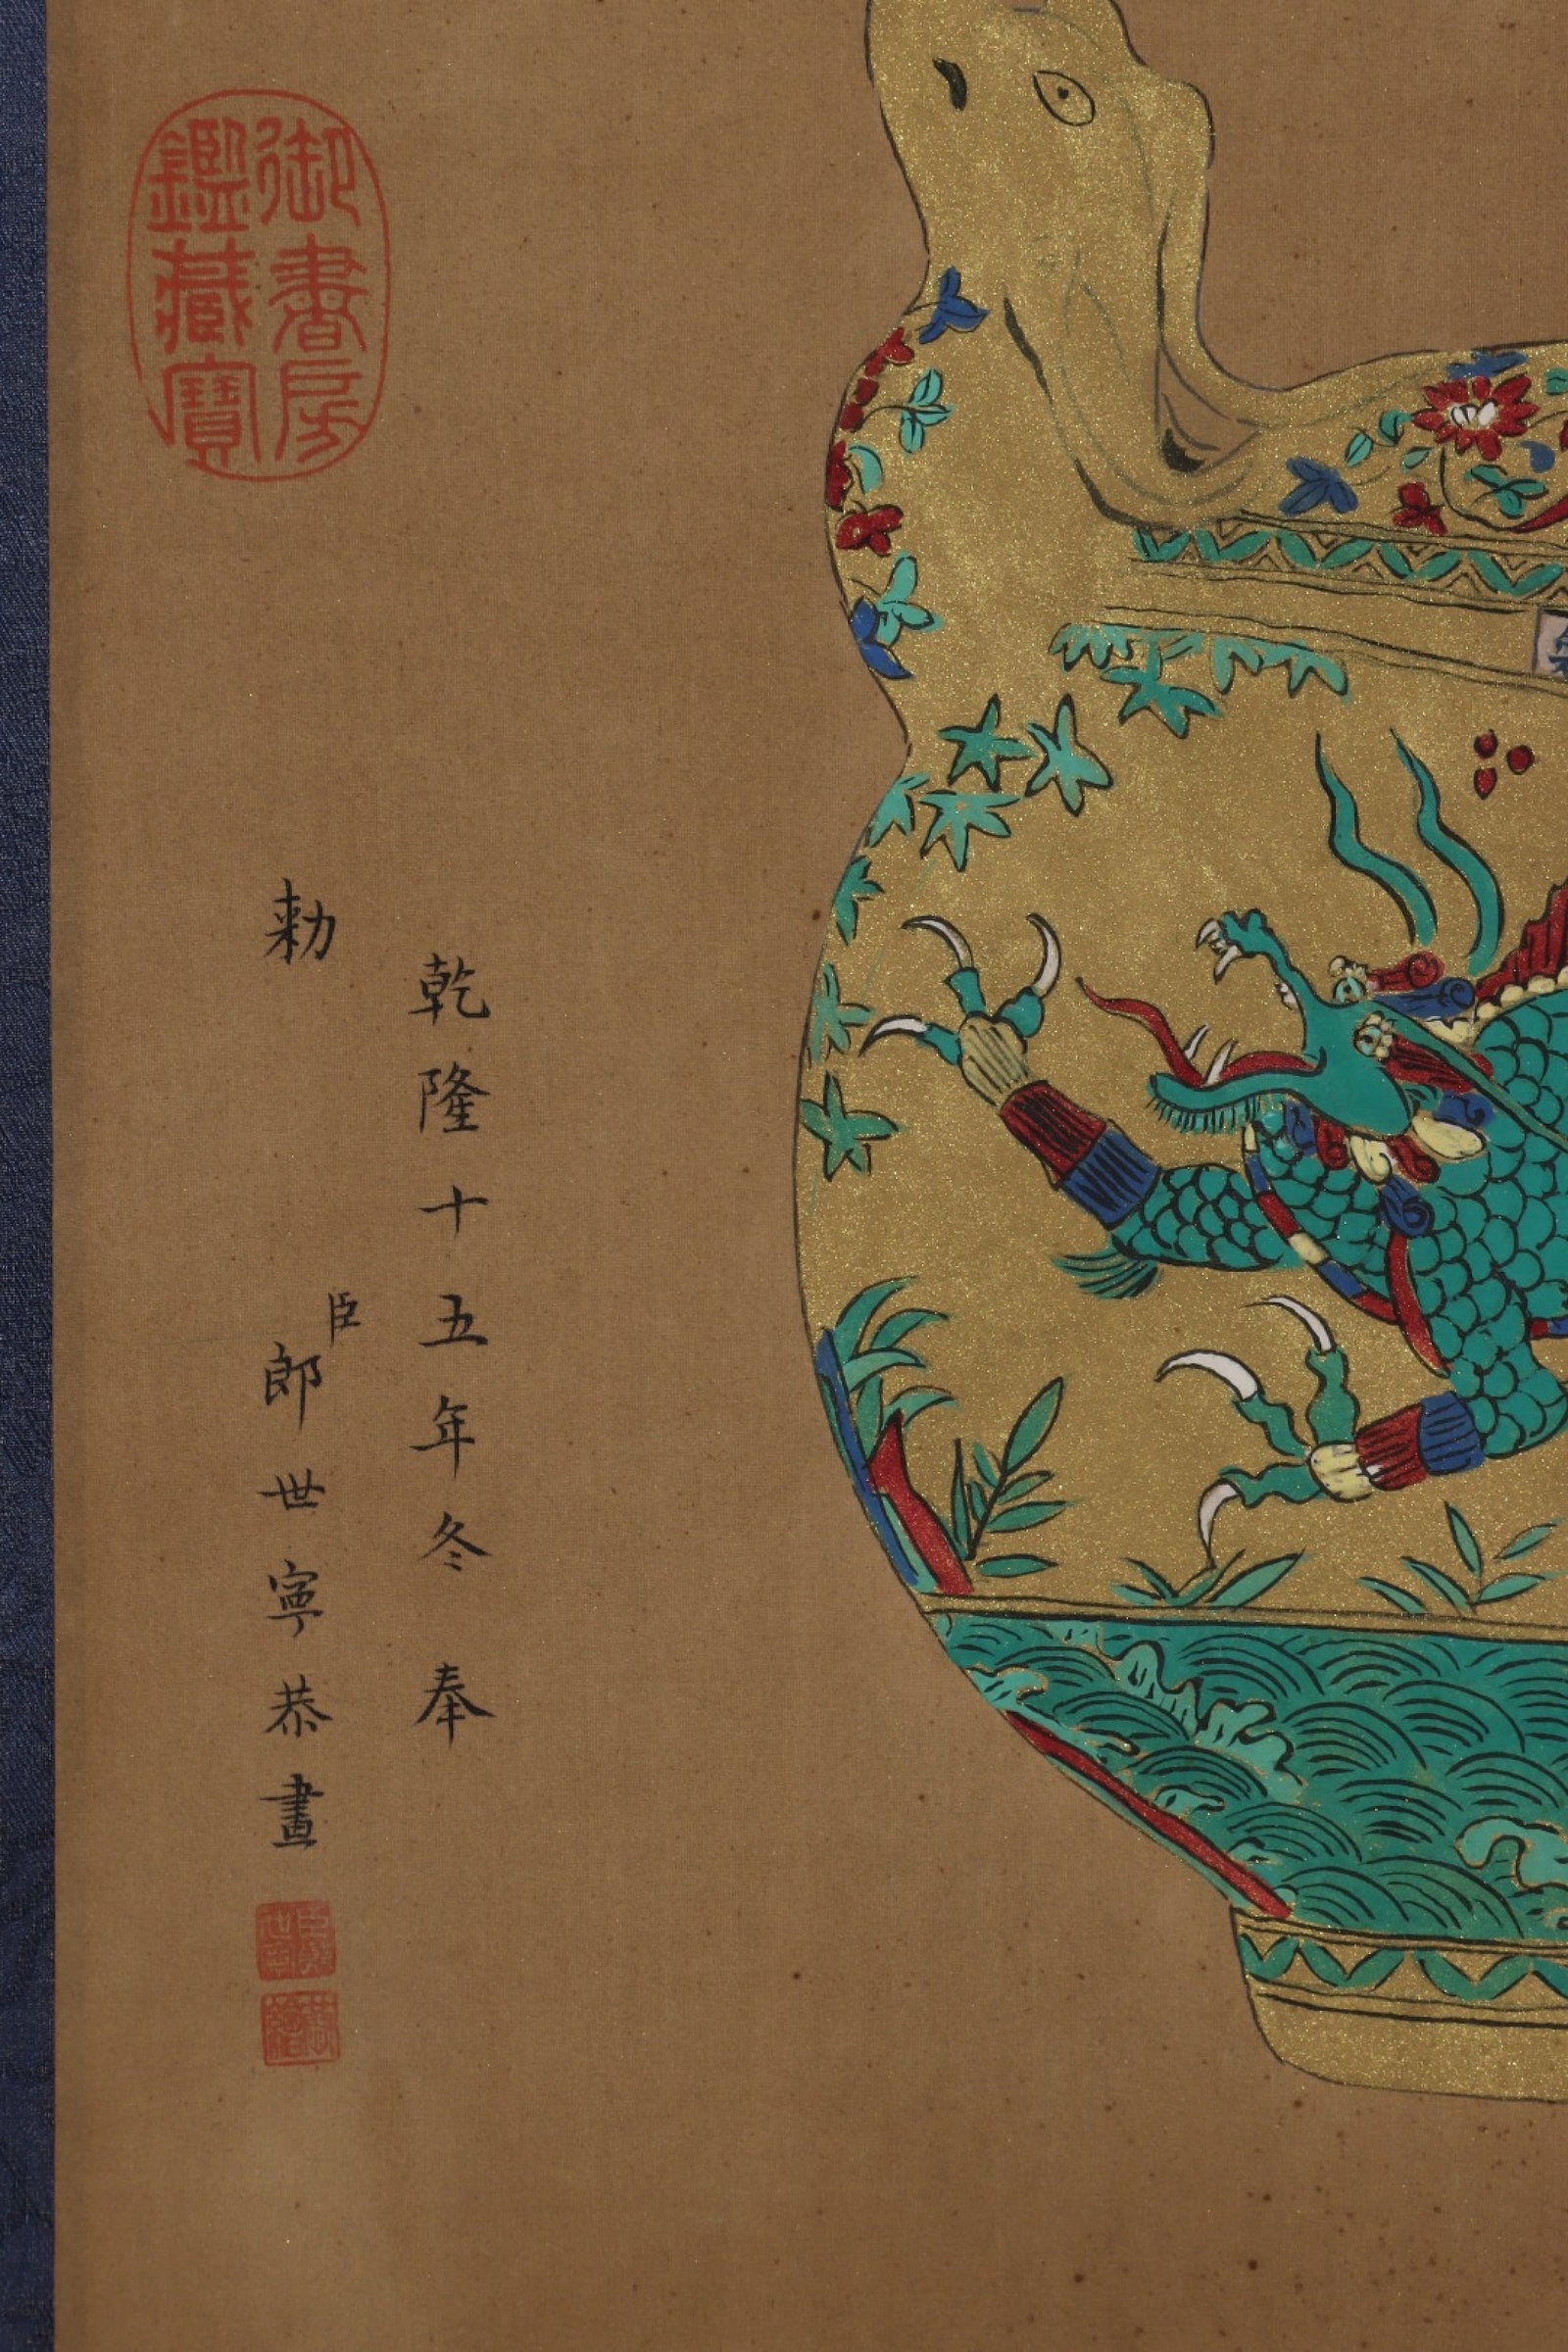 御書房
鑑藏寶
乾隆十五年冬奉
勅
臣郎世寧恭畫